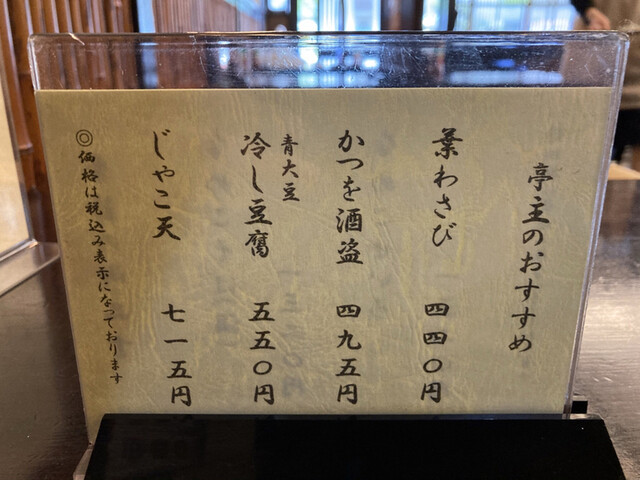 亭主のおすすめ
葉わさび 四四〇円
かつを酒盗 四九五円
青大豆
冷し豆腐 五五〇円
じゃこ天 七一五円
◎価格は税込み表示になっております